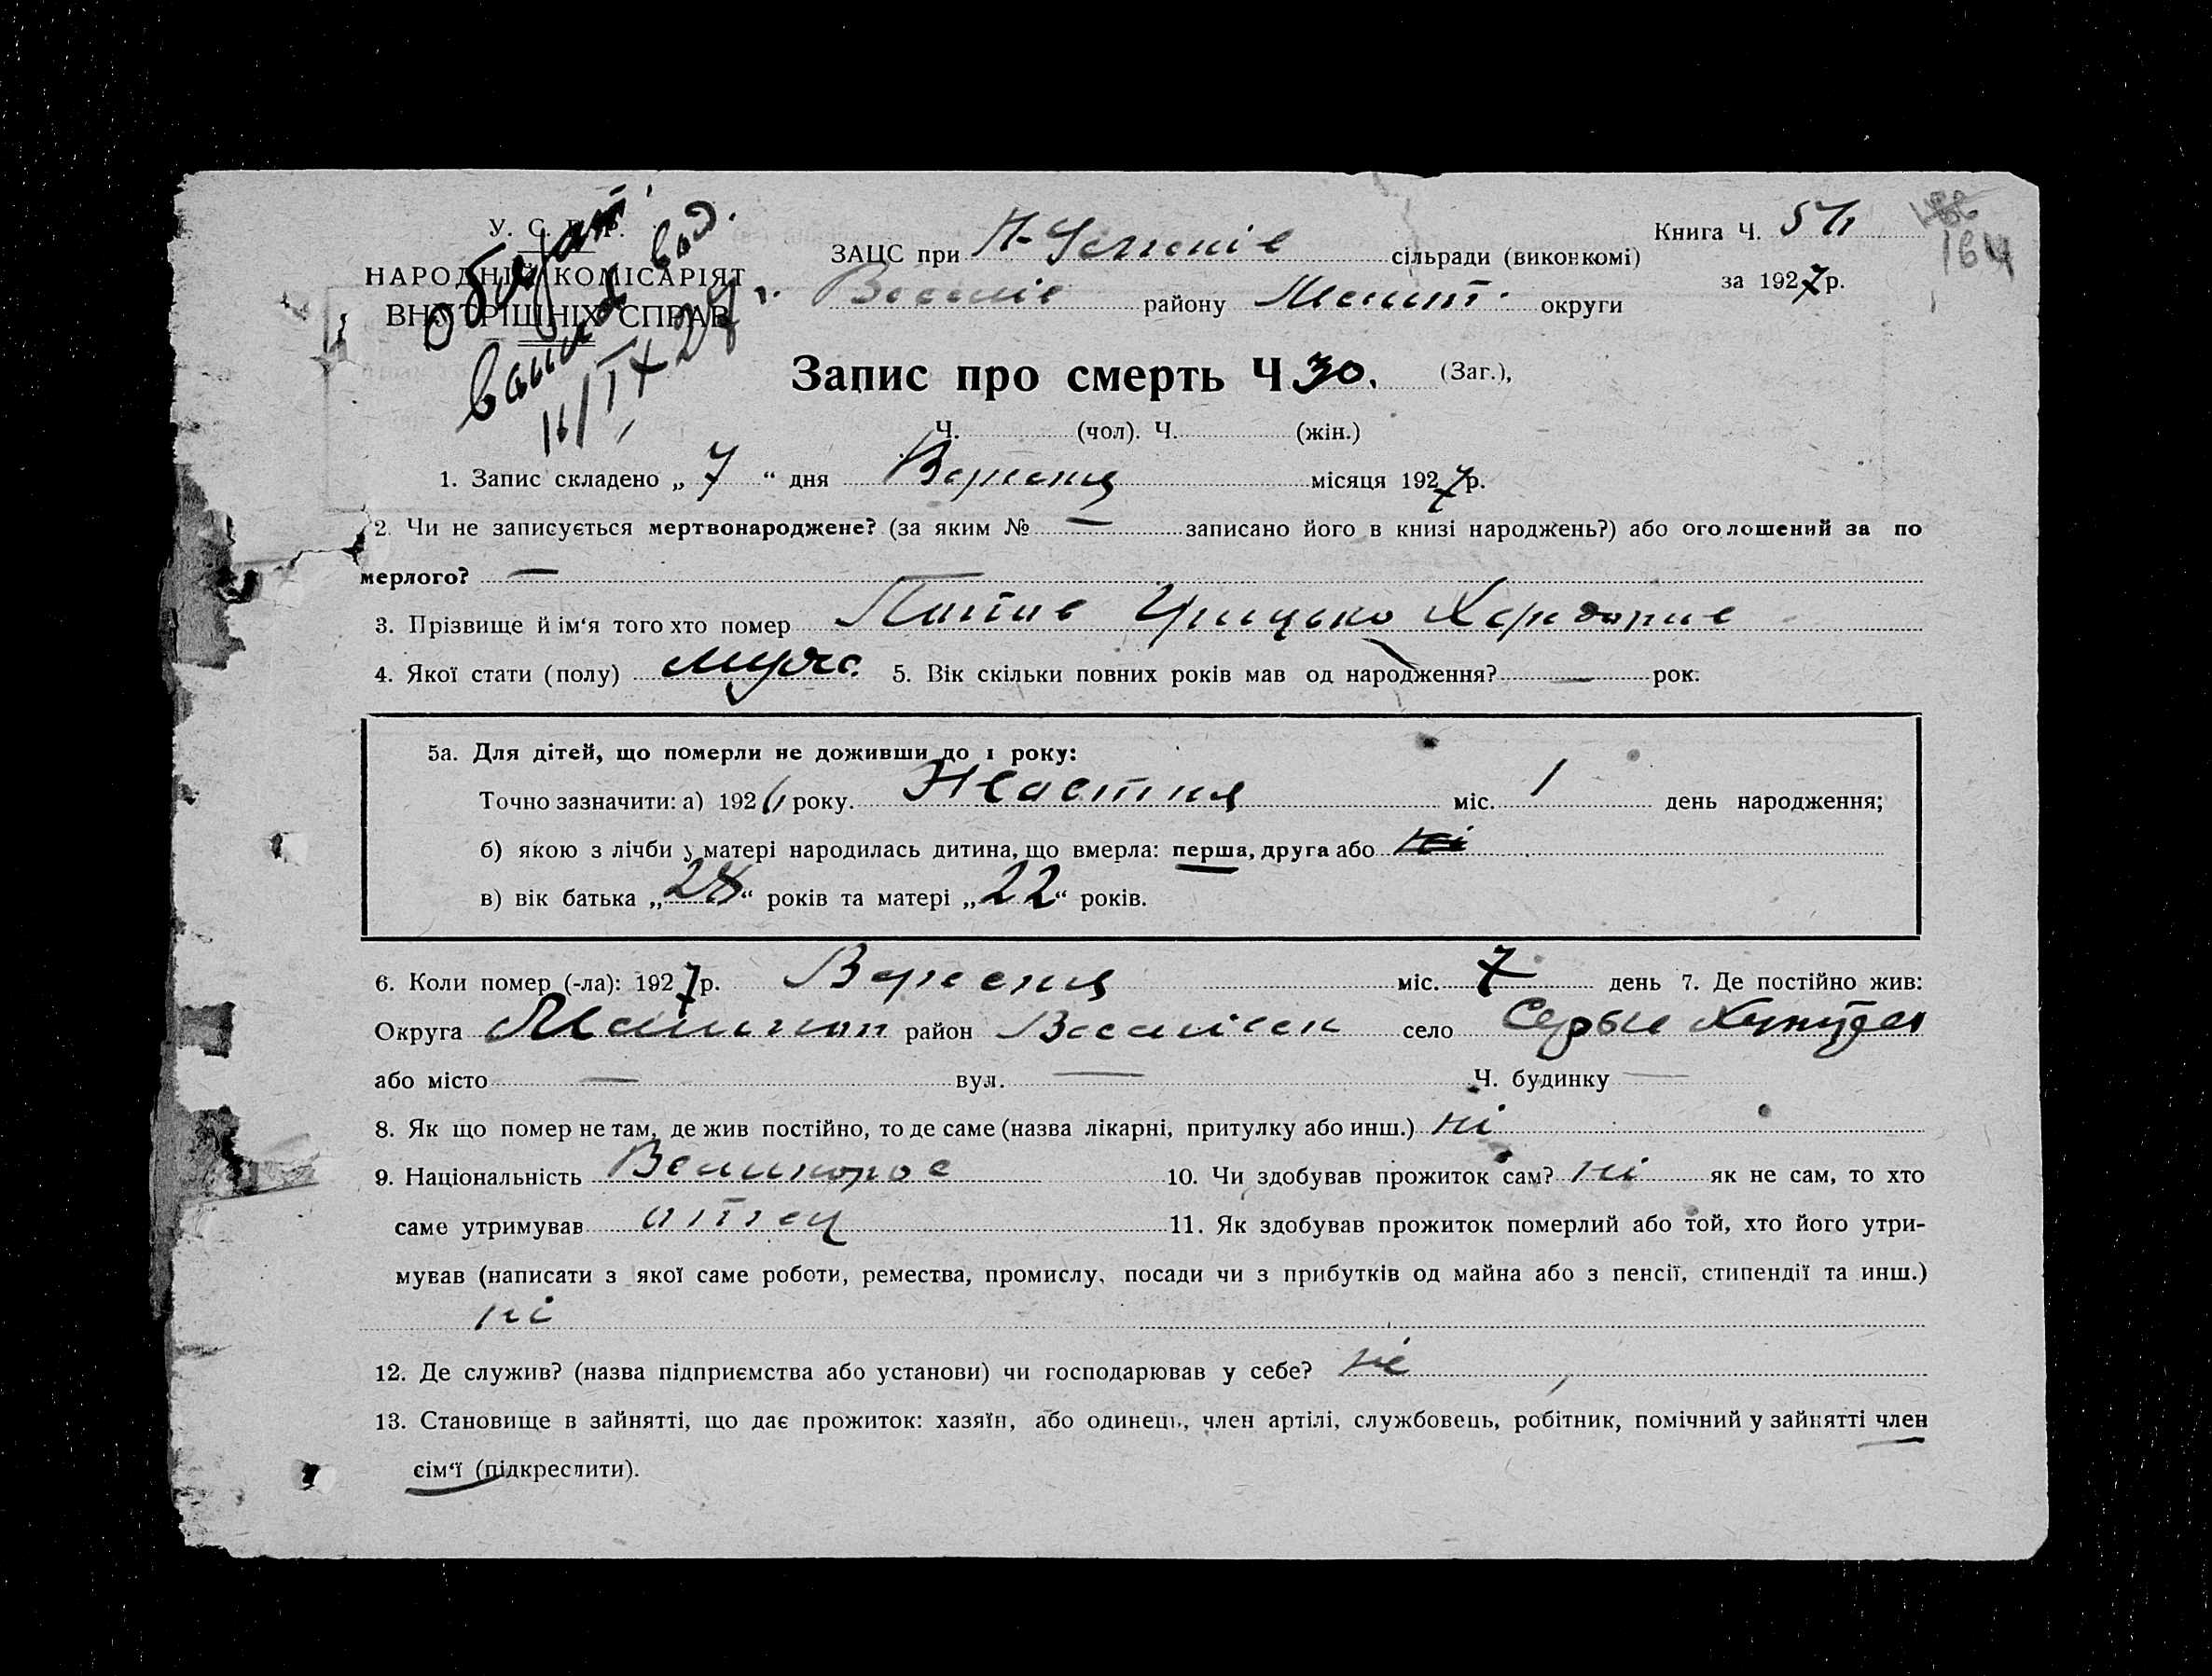 У. С. Р. Р.
НАРОДНІЙ КОМІСАРІЯТ
ВНУТРІШНІХ СПРАВ
ЗАЦС при сільради (виконкомі)
Веселів району Меліт. округи
Книга Ч.
за 1927 р.
164
Запис про смерть Ч 30. (Заг.),
Ч. (чол). Ч. (жін.)
1. Запис складено „ 7 “ дня Вересня місяця 1927 р.
2. Чи не записується мертвонароджене? (за яким № — записано його в книзі народжень?) або оголошений за по
мерлого? —
3. Прізвище й ім‘я того хто помер Грицько
4. Якої стати (полу) муж. 5. Вік скільки повних років мав од народження? — рок.
5а. Для дітей, що померли не доживши до 1 року:
Точно зазначити: а) 192 року. міс. 1 день народження;
б) якою з лічби у матері народилась дитина, що вмерла: перша, друга або
в) вік батька „ “ років та матері „ 22 “ років.
6. Коли помер (-ла): 1927 р. Вересня міс. 7 день 7. Де постійно жив:
Округа район село
або місто — вул. — Ч. будинку —
8. Як що помер не там, де жив постійно, то де саме (назва лікарні, притулку або инш.) ні
9. Національність Великорос 10. Чи здобував прожиток сам? ні як не сам, то хто
саме утримував отец 11. Як здобував прожиток померлий або той, хто його утри-
мував (написати з якої саме роботи, ремества, промислу, посади чи з прибутків од майна або з пенсії, стипендії та инш.)
ні
12. Де служив? (назва підприємства або установи) чи господарював у себе? ні
13. Становище в зайнятті, що дає прожиток: хазяїн, або одинець, член артілі, службовець, робітник, помічний у зайнятті член
сім‘ї (підкреслити).